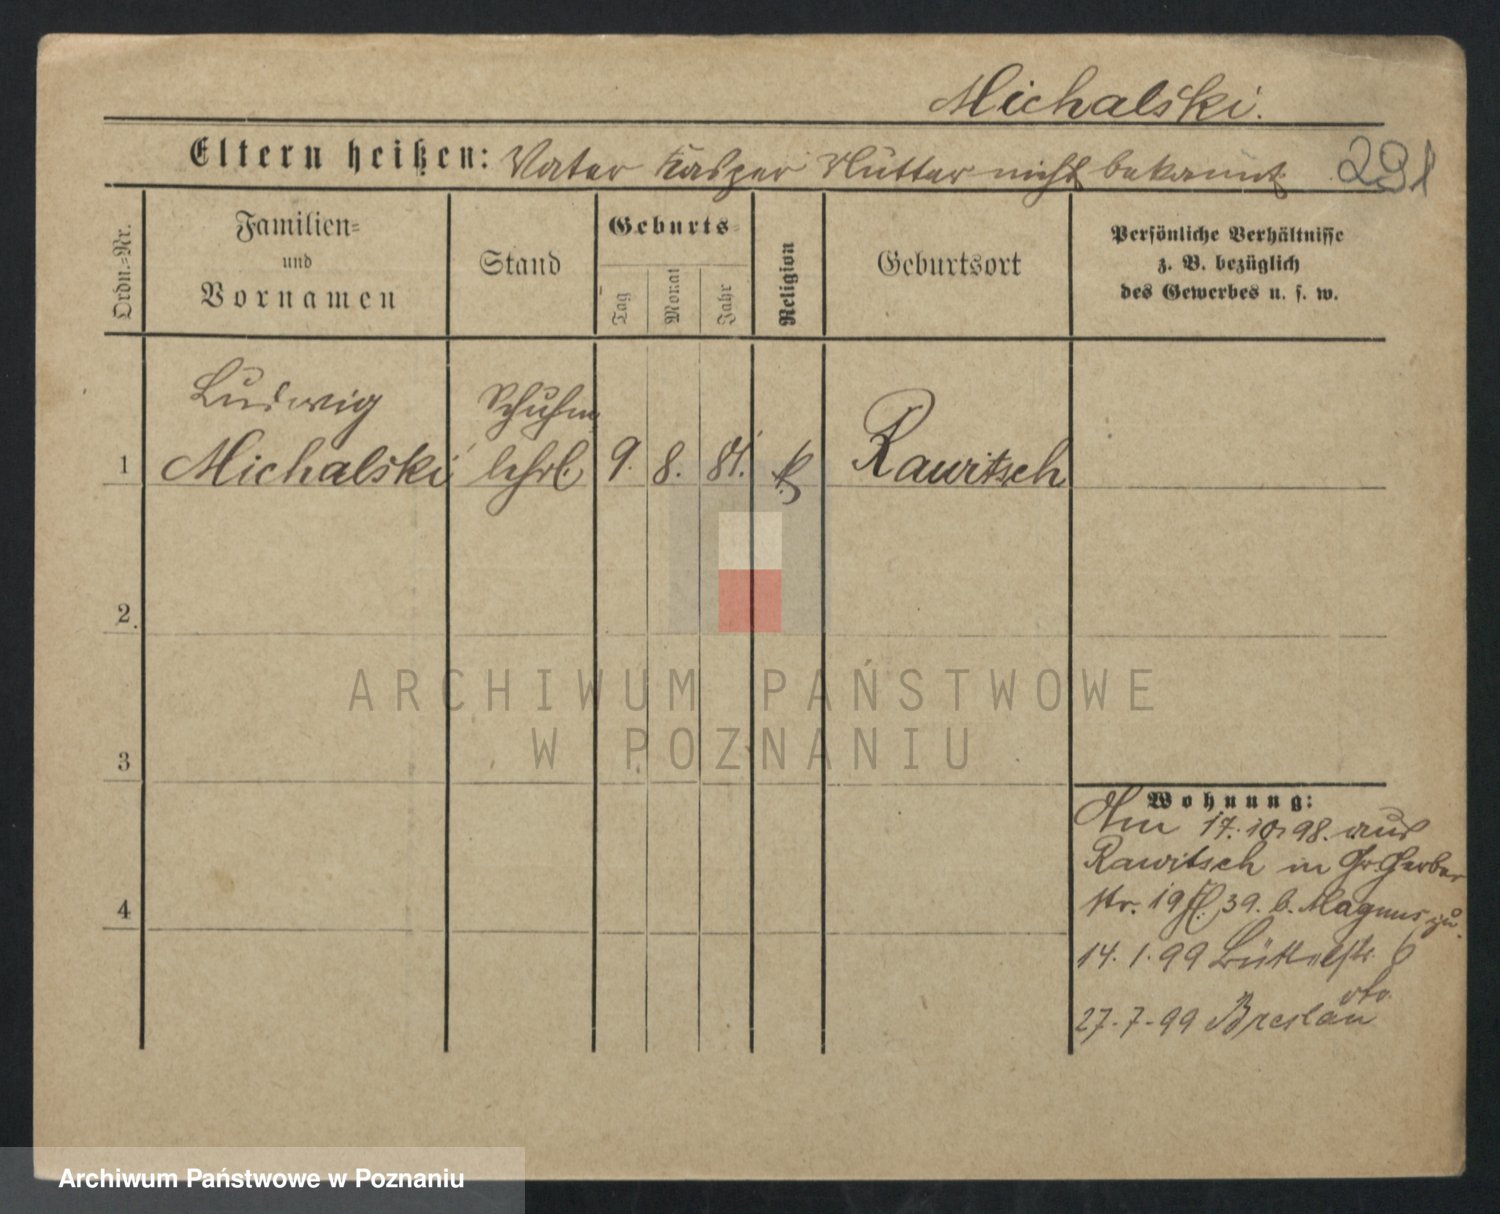 Michalski.
Eltern heißen: Vater Kasper Mutter nicht bekannt 291
Ordn.=Nr.
Familien=
und
Vornamen
Stand
Geburts=
Tag
Monat
Jahr
Religion
Geburtsort
Persönliche Verhältnisse
z. B. bezüglich
des Gewerbes u. s. w.
Ludwig Schuhm
1 Michalski lehrl. 9. 8. 81. k Rawitsch
2.
3
4
Wohnung:
Am 17.10.98. aus
Rawitsch in Gr Gerber
str. 19 39. b. Magnus zu.
14. 1. 99 Büttelstr. 6
27.-7-99 Breslau
ARCHIWUM PAŃSTWOWE
W POZNANIU
Archiwum Państwowe w Poznaniu